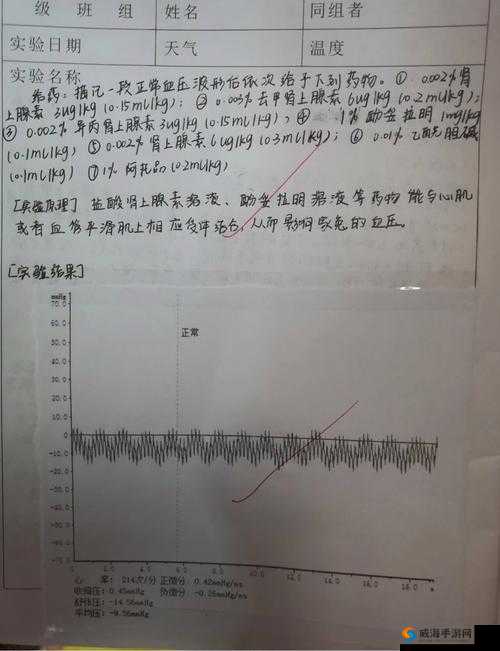 级 班 组 姓名 同组者
实验日期 天气 温度
实验名称
给药：描记一段正常血压波形后依次给予下列药物。① 0.002%肾
上腺素 3ug/kg (0.15ml/kg)；② 0.003%去甲肾上腺素 6ug/kg (0.2ml/kg)；
③ 0.002% 异丙肾上腺素 3ug/kg (0.15ml/kg)；④ 1% 酚妥拉明 1mg/kg
(0.1ml/kg) ⑤ 0.002%肾上腺素 6ug/kg (0.3ml/kg)；⑥ 0.01% 乙酰胆碱
(0.1ml/kg) ⑦ 1% 阿托品 (0.2ml/kg)
[实验原理] 盐酸肾上腺素溶液、酚妥拉明溶液等药物能与心肌
或者血管平滑肌上相应受体结合，从而影响家兔的血压。
[实验结果]
mmHg
70.0
正常
60.0
50.0
40.0
30.0
20.0
10.0
0
-10.0
-20.0
-30.0
-40.0
-50.0
0 2.0 4.0 6.0 10.0 12.0 14.0 16.0 18.0
心 率: 214次/分 正微分: 0.42mmHg/ms
收缩压: 0.45mmHg 负微分: -0.26mmHg/ms
舒张压: -14.56mmHg
平均压: -9.56mmHg
威海手游网